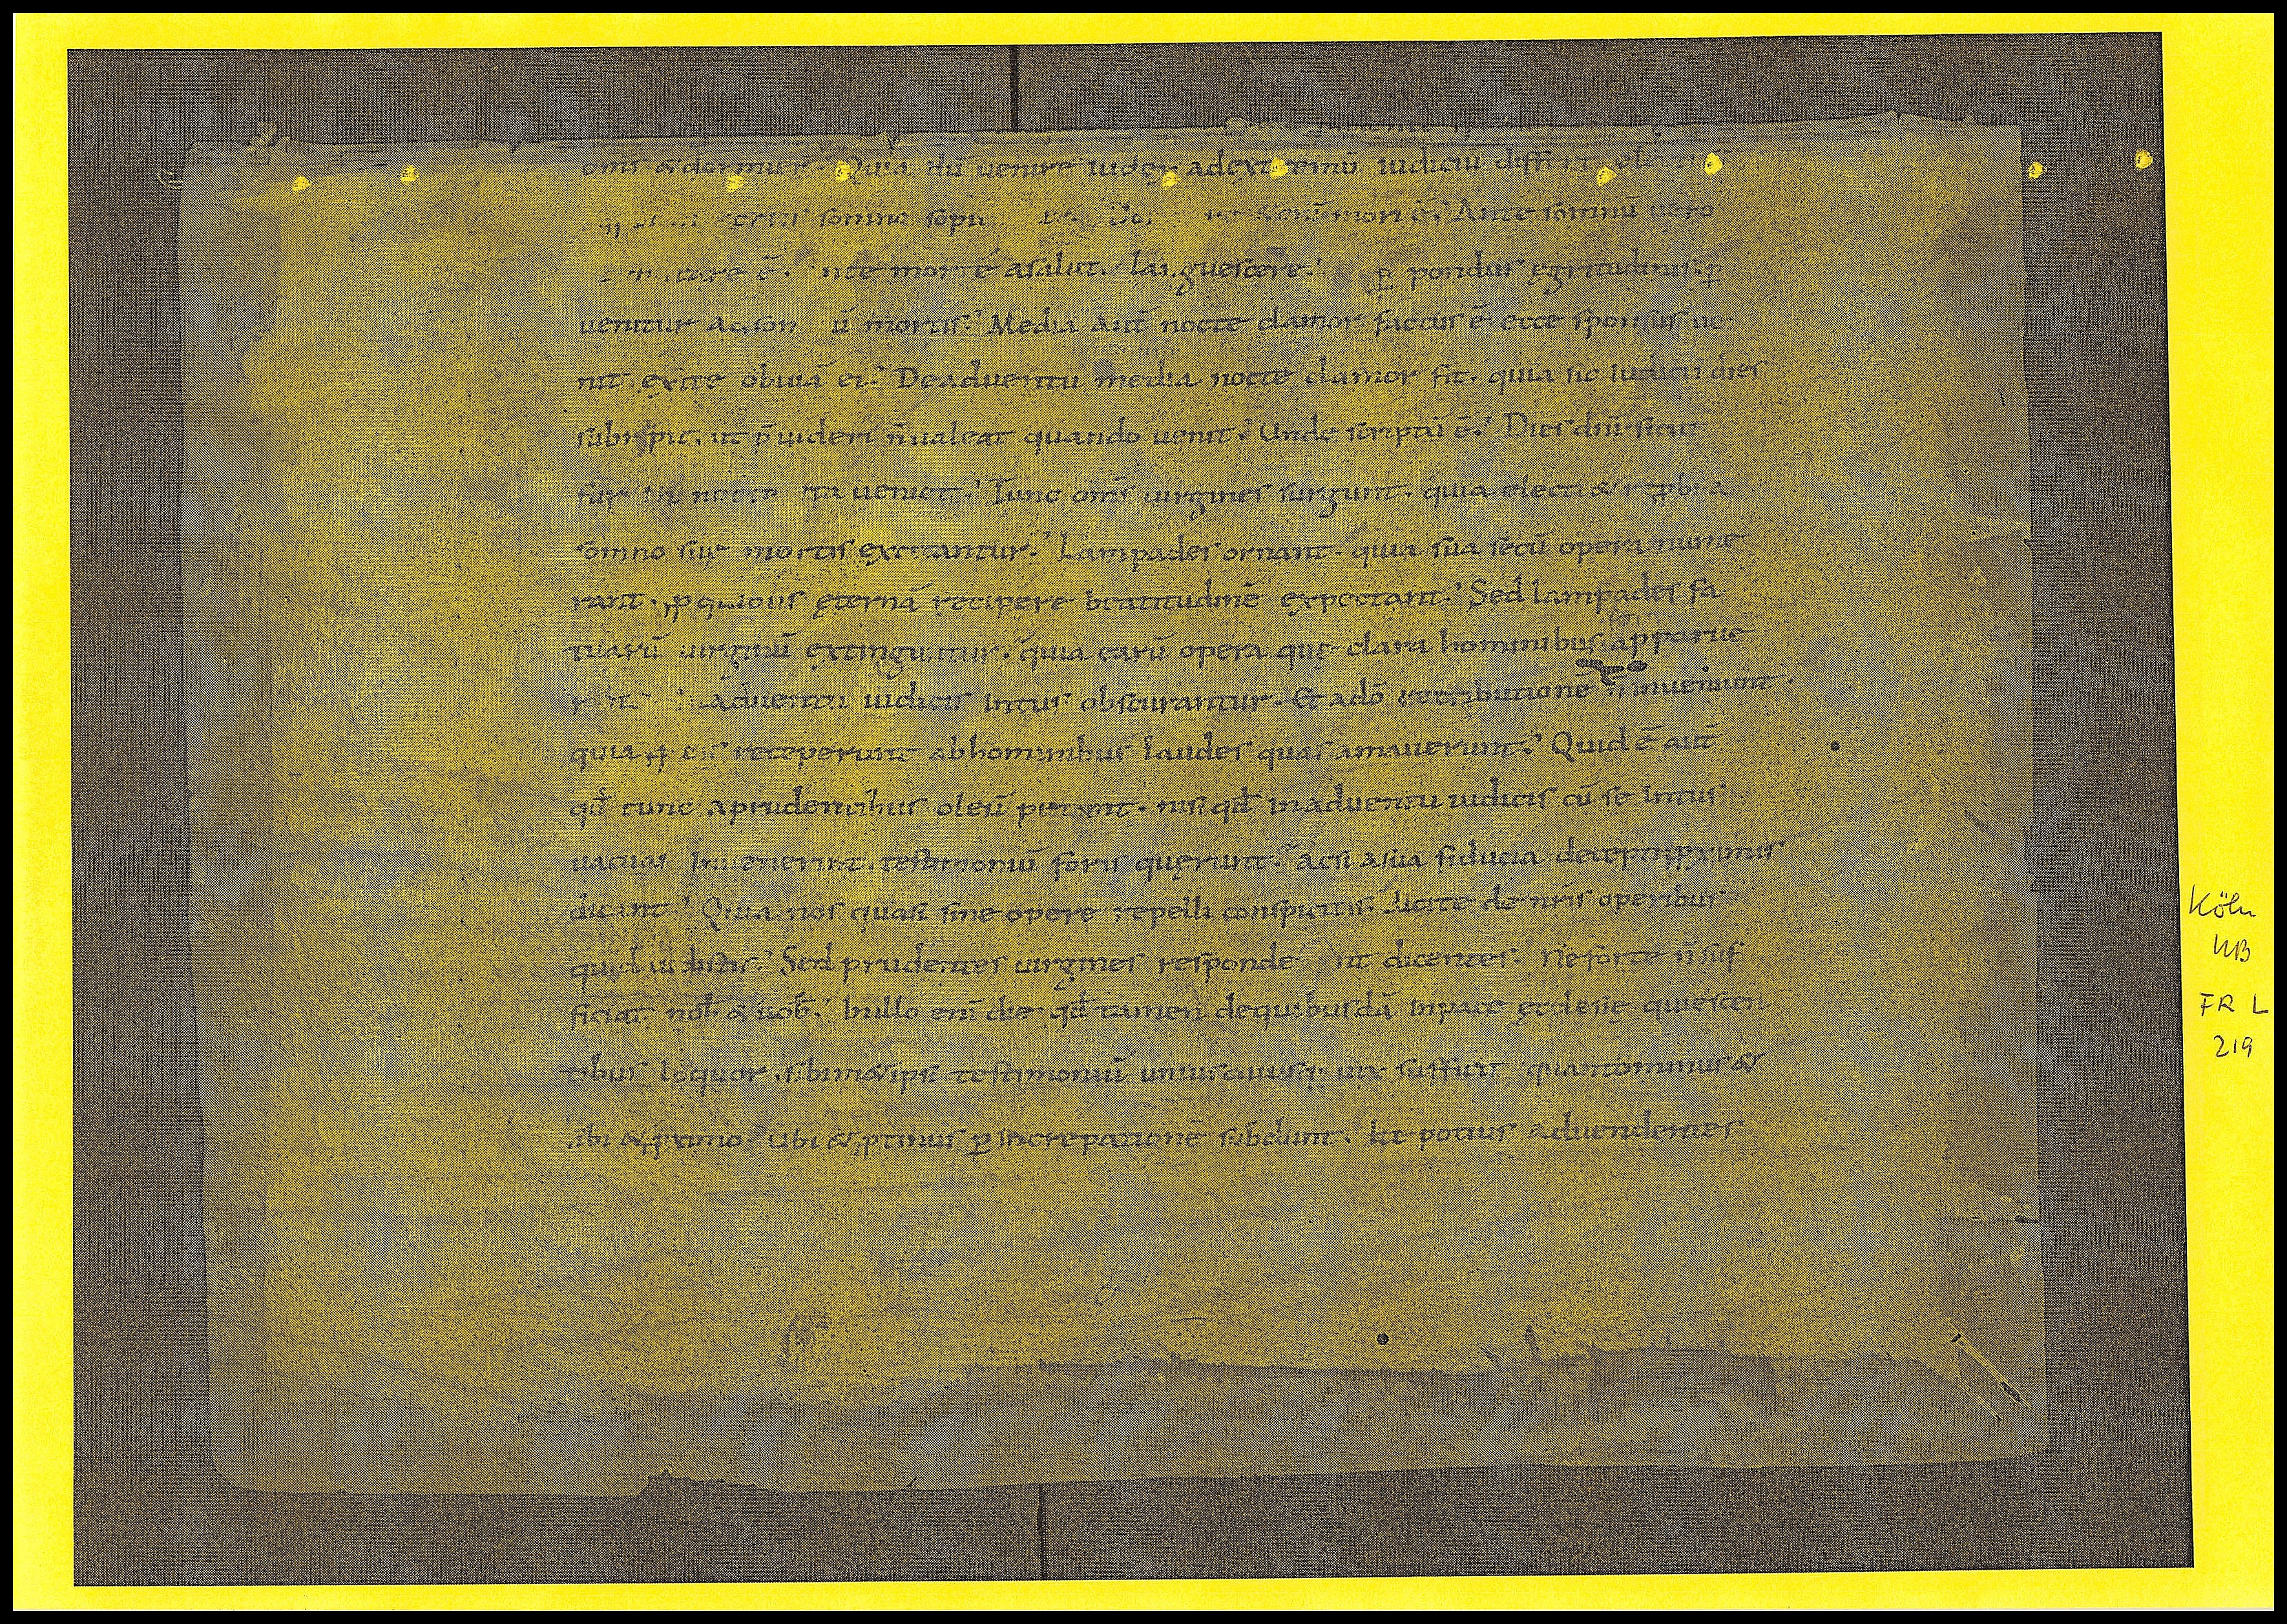 oms & dormier. Quia dū uenire iudex ad extremū iudiciū diff
somno sopi mori ē. Ante somnū uero
ē. nte mortē a salut. languescere. ꝑ pondus egritudinis. ꝑ
uenitur ad som ū mortis. Media aut̄ nocte clamor factus ē ecce sponsus ue
nit exite obuiā ei. De aduentu media nocte clamor fit. quia sic iudicii dies
subripit. ut p̄uideri n̄ ualeat quando uenit. Unde scriptū ē. Dies dnī sicut
fur in nocte ita ueniet. Tunc oms̄ uirgines surgunt. quia electi & reprobi a
somno suę mortis excitantur. Lampades ornant. quia sua secū opera nume
rant. ꝓ quibus ęternā recipere beatitudinē expectant. Sed lampades fa
tuarū uirginū extinguntur. quia earū opera quę clara hominibus apparue
rant Aduentu iudicis intus obscurantur. Et a dō retributionē n̄ inueniunt.
quia ꝓ eis receperunt ab hominibus laudes quas amauerunt. Quid ē aut̄
qđ tunc a prudentibus oleū petunt. nisi qđ in aduentu iudicis cū se intus
uacuas inuenerint. testimoniū foris querunt. ac si a sua fiducia deceptę ꝓximis
dicant. Quia nos quasi sine opere repelli conspicitis. dicite de nr̄is operibus
quid uidistis. Sed prudentes uirgines responde nt dicentes. Ne forte n̄ suf
ficiat nob̄ & uob̄. In illo enī die qđ tamen de quibusdā in pace ęcclesię quiescen
tibus loquor. sibimet ipsi testimoniū uniuscuiusq; uix sufficit quanto minus &
sibi & ꝓximo. Ubi & ꝓtinus ꝑ increpationē subdunt. Ite potius ad uendentes
Köln
UB
FR L
219